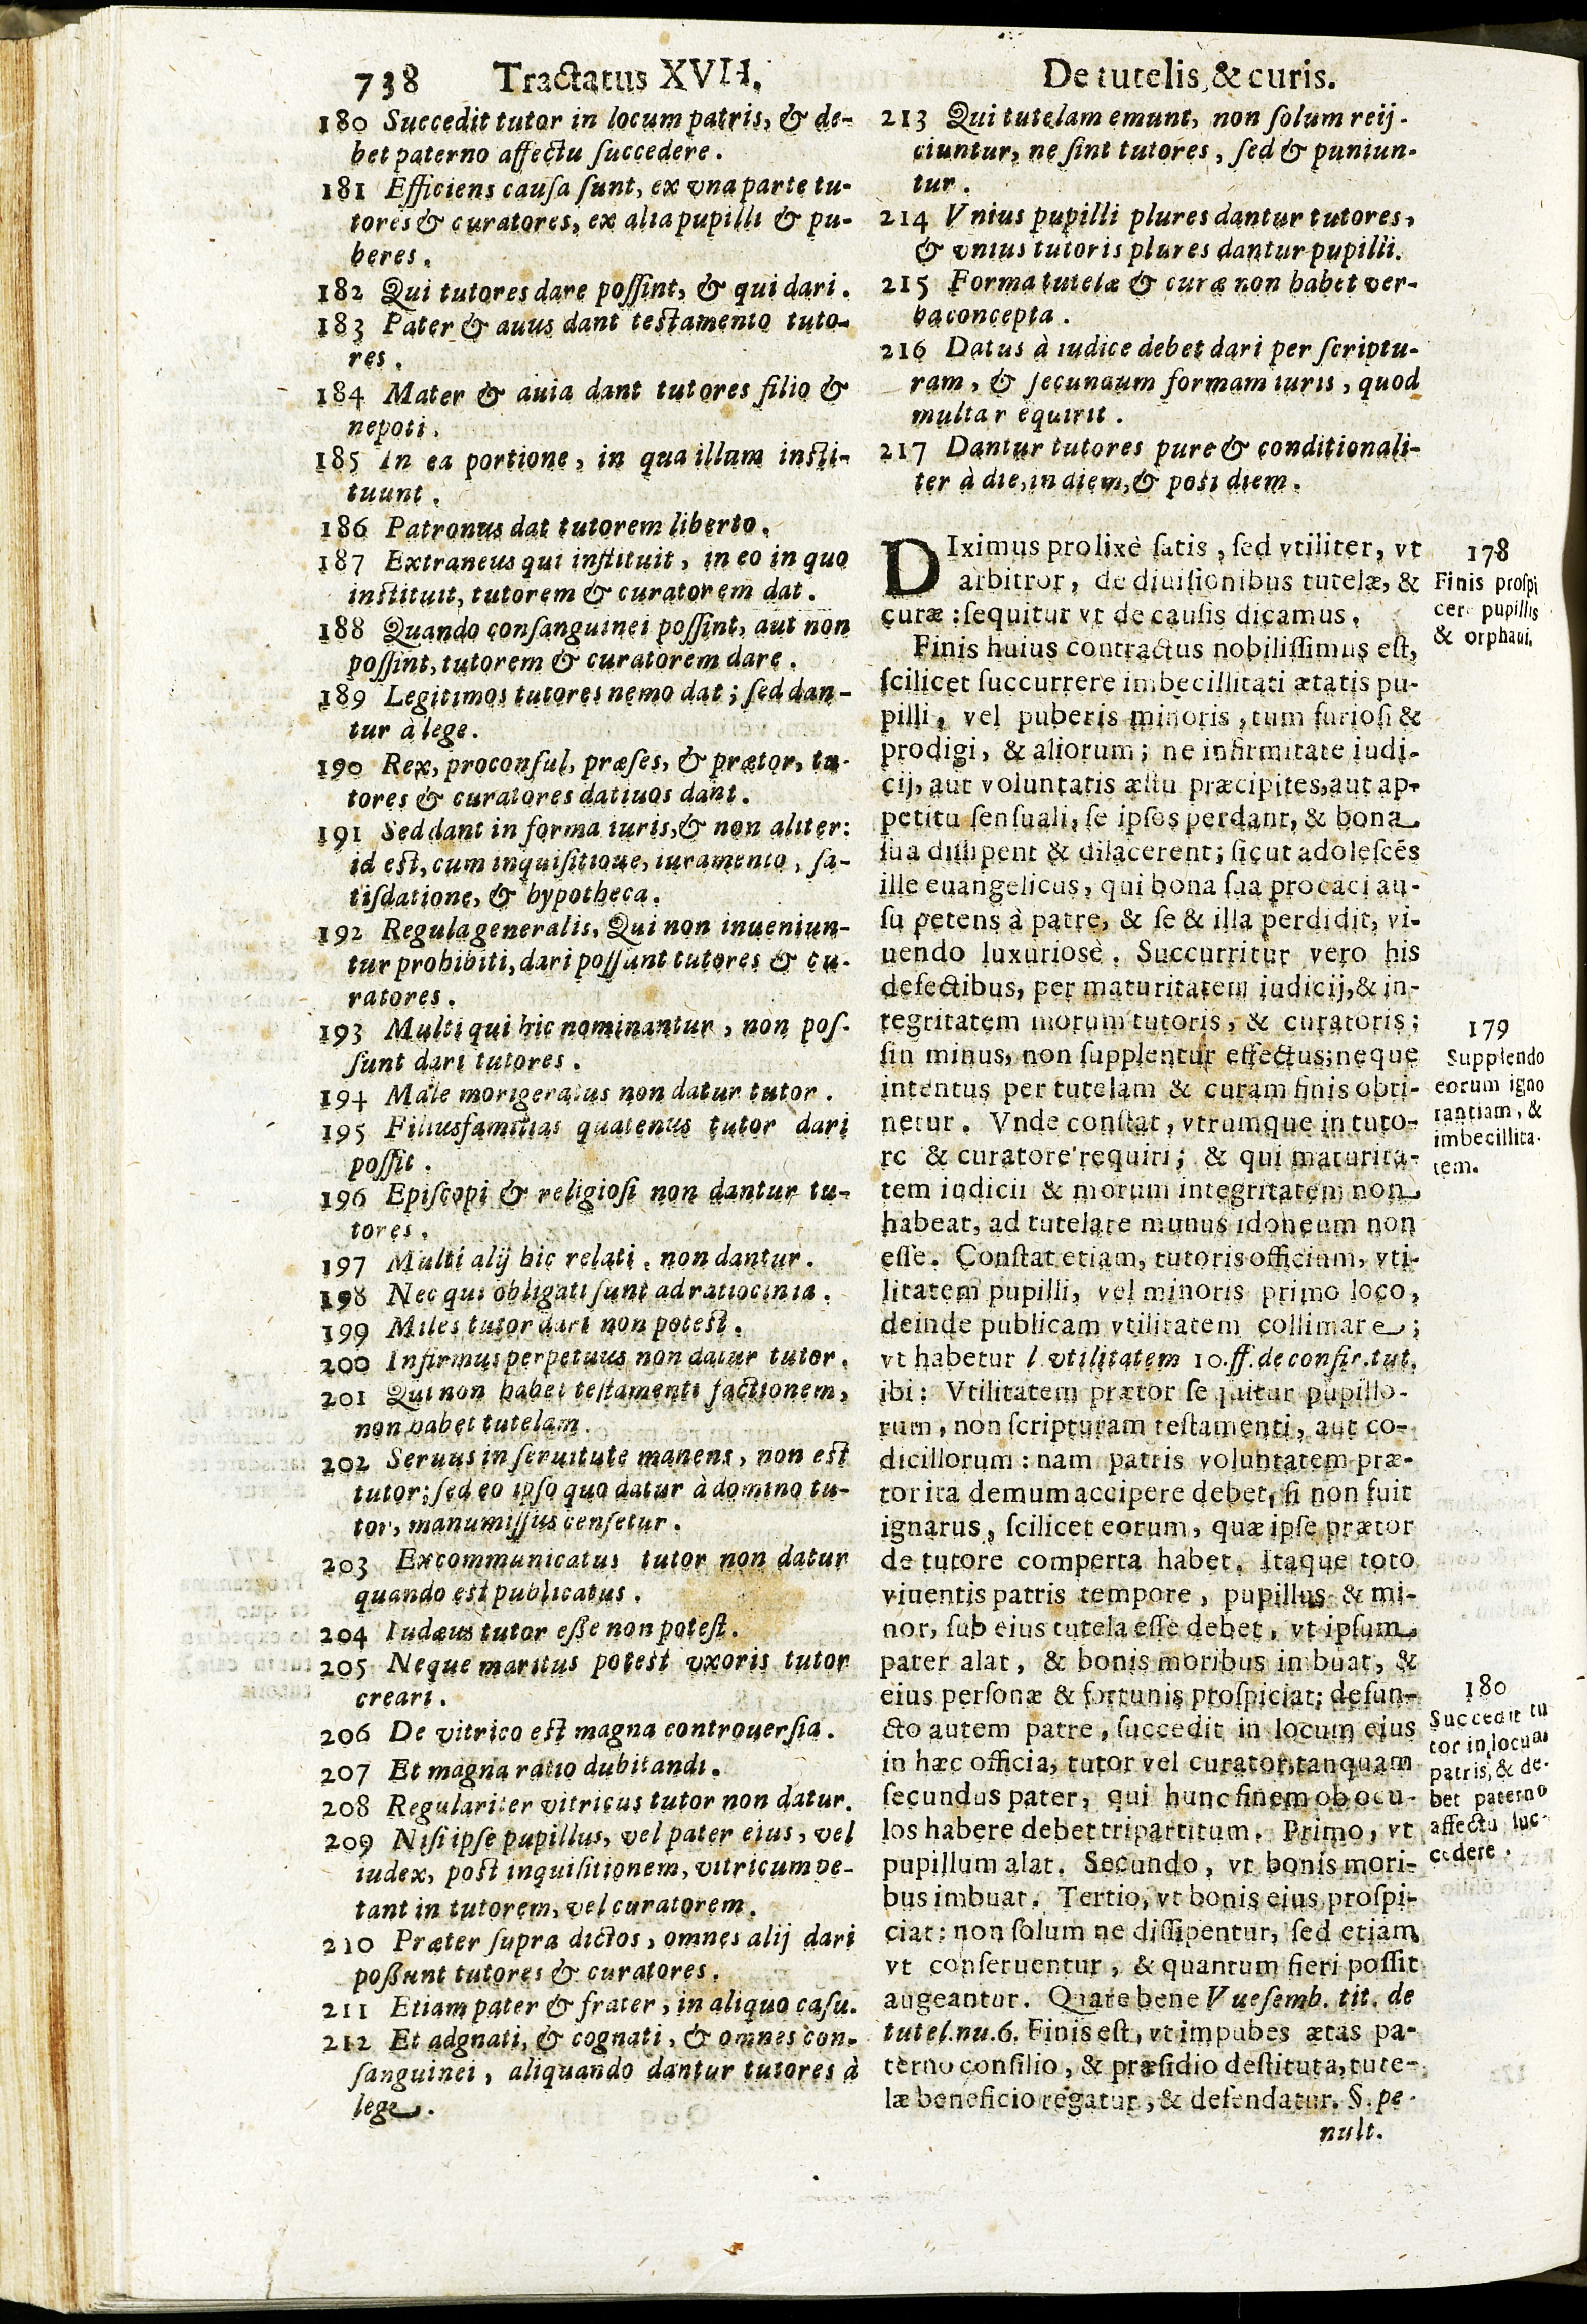 738 Tractatus XVII. De tutelis, & curis.
180 Succedit tutor in locum patris, & de-
bet paterno affectu ſuccedere.
181 Efficiens cauſa ſunt, ex vna parte tu-
tores & curatores, ex alia pupilli & pu-
beres.
182 Qui tutores dare poſſint, & qui dari.
183 Pater & auus dant teſtamento tuto-
res.
184 Mater & auia dant tutores filio &
nepoti.
185 In ea portione, in qua illum inſti-
tuunt.
186 Patronus dat tutorem liberto.
187 Extraneus qui inſtituit, in eo in quo
inſtituit, tutorem & curatorem dat.
188 Quando conſanguinei poſſint, aut non
poſſint, tutorem & curatorem dare.
189 Legitimos tutores nemo dat; ſed dan-
tur à lege.
190 Rex, proconſul, præſes, & prætor, tu-
tores & curatores datiuos dant.
191 Sed dant in forma iuris, & non aliter:
id eſt, cum inquiſitioue, iuramento, ſa-
tiſdatione, & hypotheca.
192 Regula generalis, Qui non inueniun-
tur prohibiti, dari poſſunt tutores & cu-
ratores.
193 Multi qui hic nominantur, non poſ-
ſunt dari tutores.
194 Male morigeratus non datur tutor.
195 Filiusfamilias quatenus tutor dari
poſſit.
196 Epiſcopi & religioſi non dantur tu-
tores.
197 Multi alij hic relati, non dantur.
198 Nec qui obligati ſunt ad ratiocinia.
199 Miles tutor dari non poteſt.
200 Infirmus perpetuus non datur tutor.
201 Qui non habet teſtamenti factionem,
non habet tutelam.
202 Seruus in ſeruitute manens, non eſt
tutor; ſed eo ipſo quo datur à domino tu-
tor, manumiſſus cenſetur.
203 Excommunicatus tutor non datur
quando eſt publicatus.
204 Iudæus tutor eße non poteſt.
205 Neque maritus poteſt vxoris tutor
creari.
206 De vitrico eſt magna controuerſia.
207 Et magna ratio dubitandi.
208 Regulariter vitricus tutor non datur.
209 Niſi ipſe pupillus, vel pater eius, vel
iudex, poſt inquiſitionem, vitricum de-
tant in tutorem, vel curatorem.
210 Præter ſupra dictos, omnes alij dari
poßunt tutores & curatores.
211 Etiam pater & frater, in aliquo caſu.
212 Et adgnati, & cognati, & omnes con-
ſanguinei, aliquando dantur tutores à
lege.
213 Qui tutelam emunt, non ſolum reij-
ciuntur, ne ſint tutores, ſed & puniun-
tur.
214 Vnius pupilli plures dantur tutores,
& vnius tutoris plures dantur pupilli.
215 Forma tutelæ & curæ non habet ver-
ba concepta.
216 Datus à iudice debet dari per ſcriptu-
ram, & ſecundum formam iuris, quod
multa requirit.
217 Dantur tutores pure & conditionali-
ter à die, in diem, & poſt diem.
DIximus prolixè ſatis, ſed vtiliter, vt
arbitror, de diuiſionibus tutelæ, &
curæ: ſequitur vt de cauſis dicamus.
Finis huius contractus nobiliſſimus eſt,
ſcilicet ſuccurrere imbecillitati ætatis pu-
pilli, vel puberis minoris, tum furioſi &
prodigi, & aliorum; ne infirmitate iudi-
cij, aut voluntatis æſtu præcipites, aut ap-
petitu ſenſuali, ſe ipſos perdant, & bona
ſua diſſipent & dilacerent; ſicut adoleſcēs
ille euangelicus, qui bona ſua procaci au-
ſu petens à patre, & ſe & illa perdidit, vi-
uendo luxuriosè. Succurritur vero his
defectibus, per maturitatem iudicij, & in-
tegritatem morum tutoris, & curatoris;
ſin minus, non ſupplentur effectus; neque
intentus per tutelam & curam finis obti-
netur. Vnde conſtat, vtrumque in tuto-
re & curatore requiri; & qui maturita-
tem iudicii & morum integritatem non
habeat, ad tutelare munus idoneum non
eſſe. Conſtat etiam, tutoris officium, vti-
litatem pupilli, vel minoris primo loco,
deinde publicam vtilitatem collimare;
vt habetur l. vtilitatem 10. ff. de confir. tut.
ibi: Vtilitatem prætor ſequitur pupillo-
rum, non ſcripturam teſtamenti, aut co-
dicillorum: nam patris voluntatem præ-
tor ita demum accipere debet, ſi non fuit
ignarus, ſcilicet eorum, quæ ipſe prætor
de tutore comperta habet. Itaque toto
viuentis patris tempore, pupillus & mi-
nor, ſub eius tutela eſſe debet, vt ipſum
pater alat, & bonis moribus imbuat, &
eius perſonæ & fortunis proſpiciat; defun-
cto autem patre, ſuccedit in locum eius
in hæc officia, tutor vel curator, tanquam
ſecundus pater, qui hunc finem ob ocu-
los habere debet tripartitum. Primo, vt
pupillum alat. Secundo, vt bonis mori-
bus imbuat. Tertio, vt bonis eius proſpi-
ciat; non ſolum ne diſſipentur, ſed etiam
vt conſeruentur, & quantum fieri poſſit
augeantur. Quare bene Vueſemb. tit. de
tutel. nu. 6. Finis eſt, vt impubes ætas pa-
terno conſilio, & præſidio deſtituta, tute-
læ beneficio regatur, & defendatur. §. pe-
nult.
178
Finis proſpi
cere pupillis
& orphani.
179
Supplendo
eorum igno
rantiam, &
imbecillita-
tem.
180
Succedit tu
tor in locum
patris, & de-
bet paterno
affectu ſuc-
cedere.